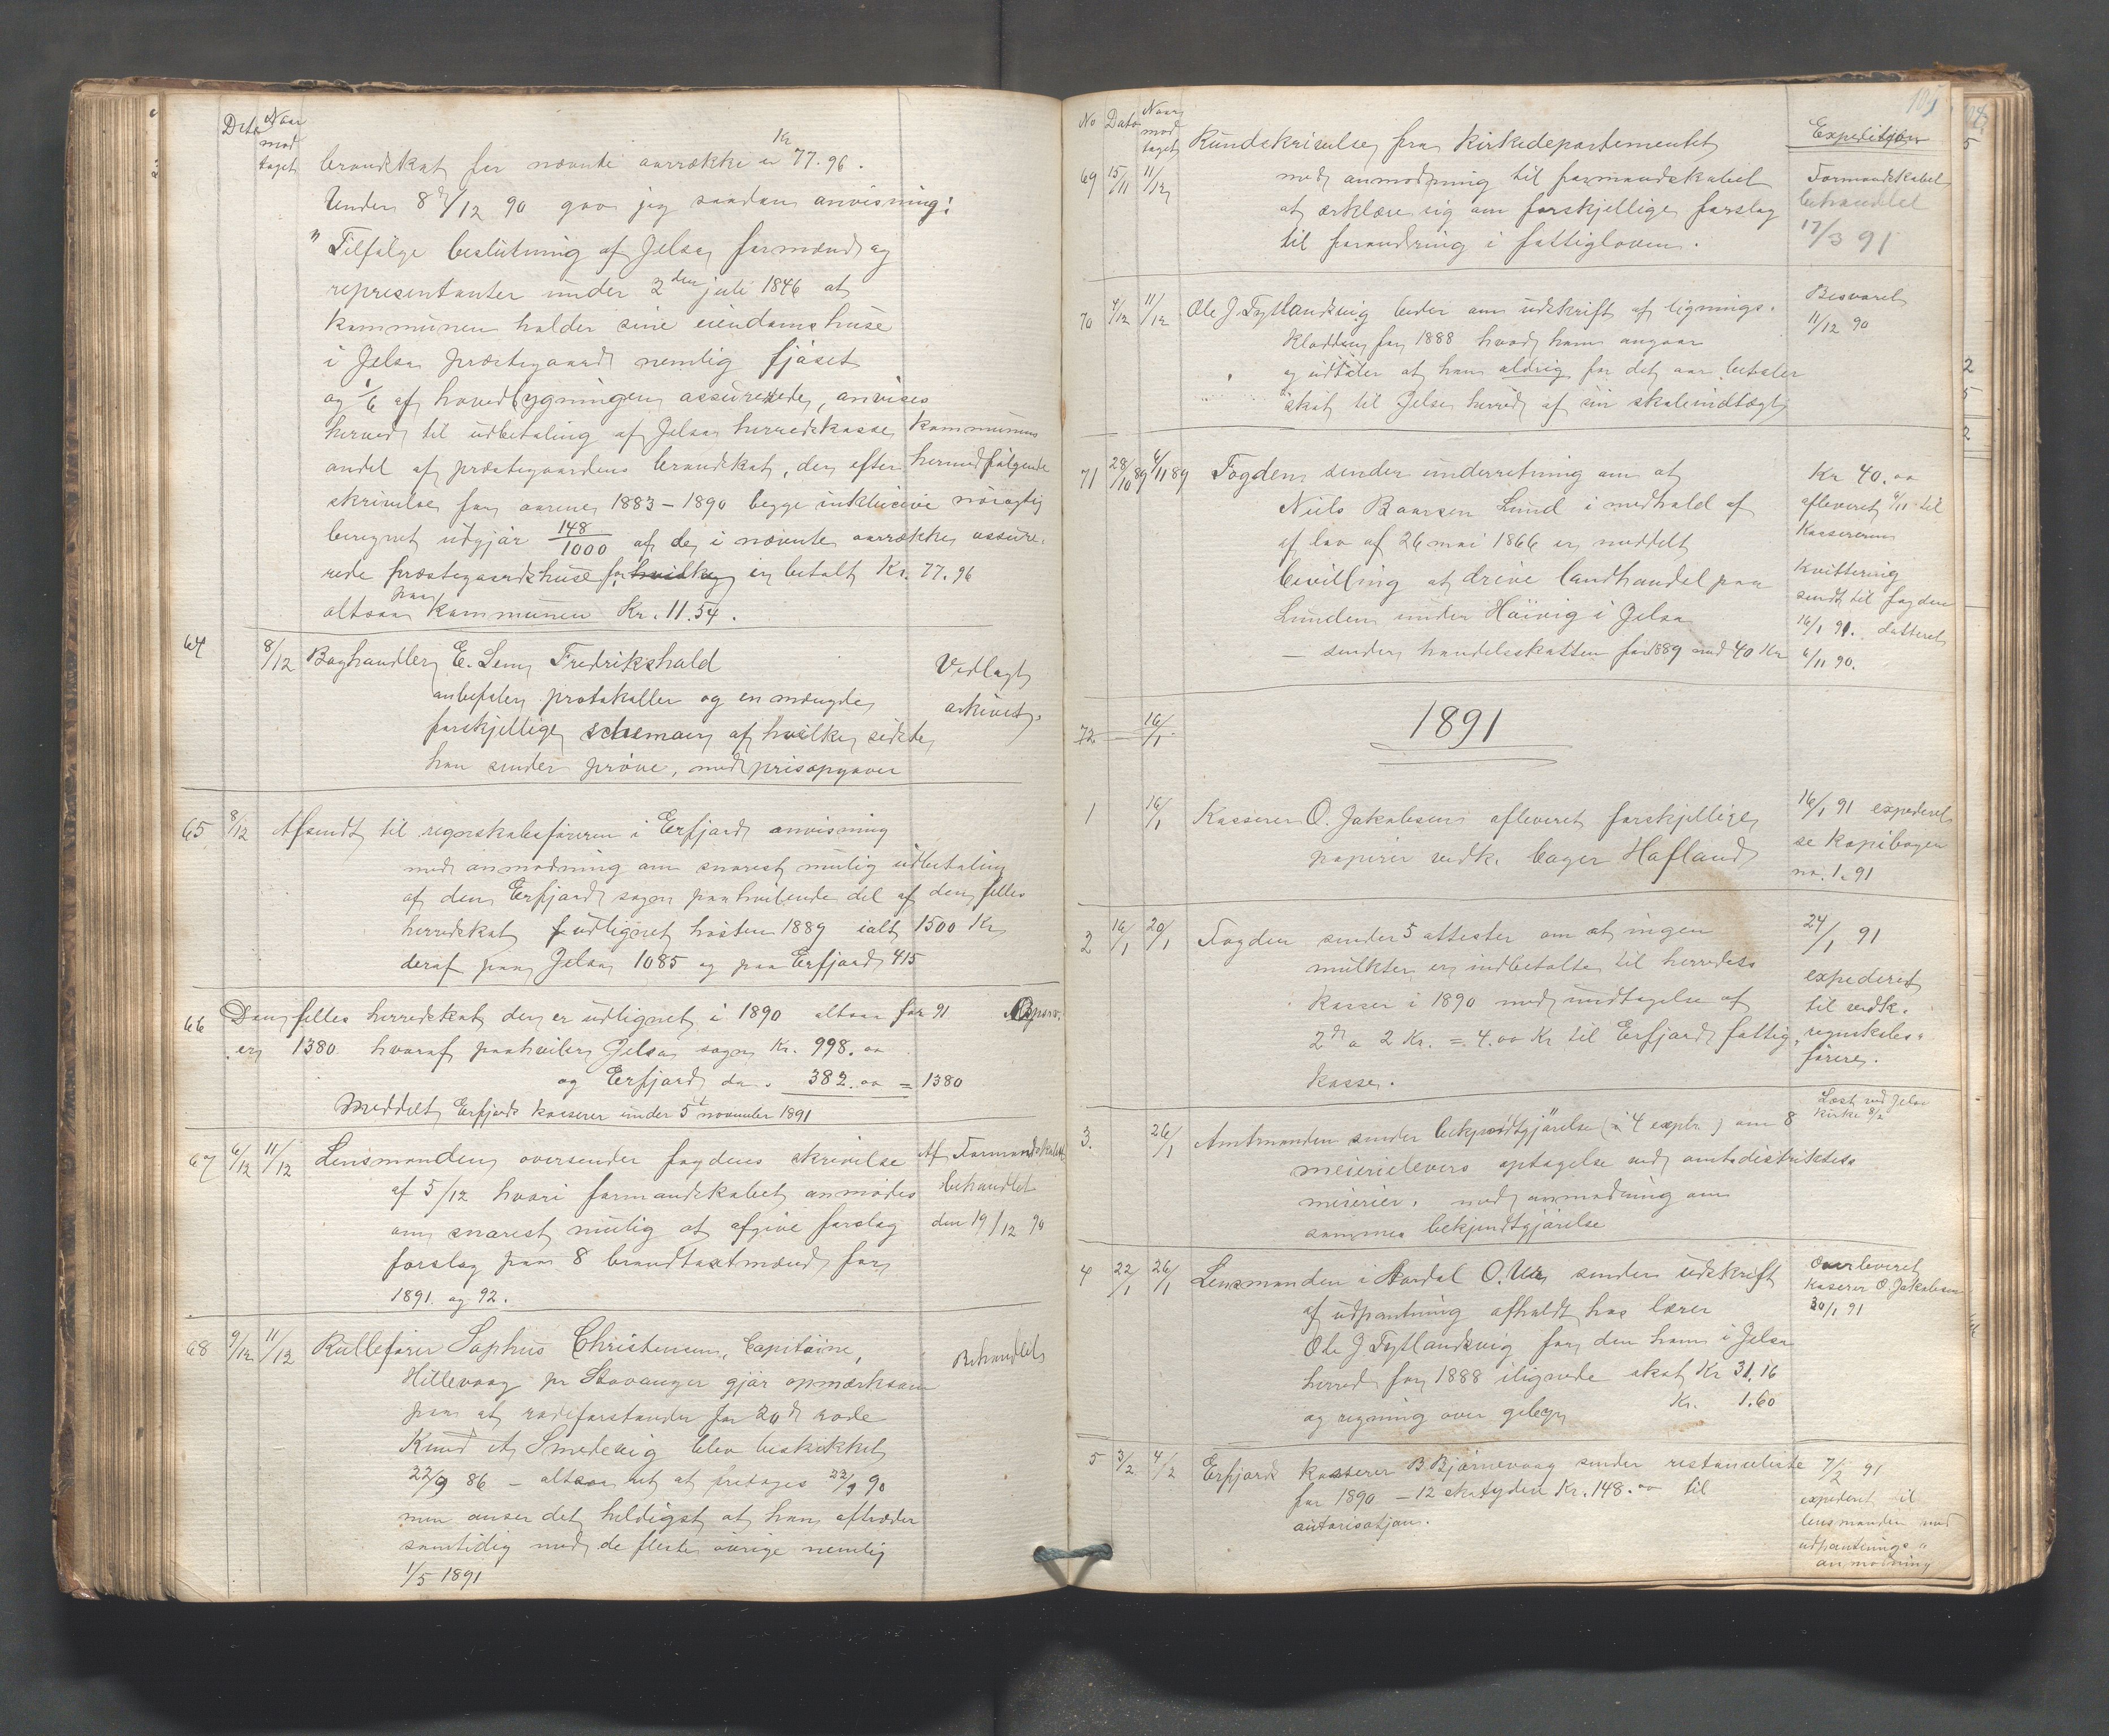 Dato Naar modtaget
brandskat for nævnte aarrække er Kr 77.96.
Under 8d/12 90 gav jeg saadan anvisning:
"Tilfølge beslutning af Jelsa formænd og
representanter under 2den juli 1846 at
kommunen holder sine eiendomshuse
i Jelsa præstegaard nemlig fjøset
og 1/6 af hovedbygningen assurerede, anvises
herved til udbetaling af Jelsa herredskasse kommunens
andel af præstegaardens brandskat, der efter hermedfølgende
skrivelse for aarene 1883-1890 begge inklusive nøiagtig
beregnet udgjør 148/1000 af de i nævnte aarrække assure-
rede præstegaardshuse for hvilke er betalt Kr. 77.96
altsaa paa kommunen Kr. 11.54.
64 8/12 Boghandler E. Sem, Fredrikshald Vedlagt
anbefaler protokoller og en mængde arkivet.
forskjellige schemaer af hvilke sidste
han sender prøve, med prisopgaver
65 8/12 Afsendt til regnskabsføreren i Erfjord anvisning
med anmodning om snarest mulig udbetaling
af den Erfjord sogn paahvilende del af den felles
herredskat udlignet høsten 1889 ialt 1500 Kr
deraf paa Jelsa 1085 og paa Erfjord 415
66 Den felles herredskat der er udlignet i 1890 altsaa for 91
er 1380 hvoraf paahviler Jelsa sogn Kr. 998.00
og Erfjord do. 382.00 = 1380
Meddelt Erfjords kasserer under 5t november 1891
67 6/12 11/12 Lensmanden oversender fogdens skrivelse Af Formandskabet
af 5/12 hvori formandskabet anmodes behandlet
om snarest mulig at afgive forslag den 19/12 90
forslag paa 8 brandtaxtmænd for
1891 og 92.
68 9/12 11/12 Rullefører Sophus Christensen, Capitaine, Behandlet
Hillevaag pr Stavanger gjør opmærksom
paa at rodeforstander for 20d rode
Knud A. Smedevig blev beskikket
22/9 86 - altsaa ret at fretages 22/9 90
men anser det heldigst at han aftræder
samtidig med de fleste øvrige nemlig
1/5 1891
No Dato Naar modtaget Expedition
69 15/11 11/12 Rundskrivelse fra Kirkedepartementet Formandskabet
med anmodning til formandskabet behandlet
at erklære sig om forskjellige forslag 17/3 91
til forandring i fattigloven.
70 4/12 11/12 Ole J. Tytlandsvig beder om udskrift af lignings- Besvaret
kladden for 1888 hvad ham angaar 11/12 90
og udtaler at han aldrig for det aar betaler
skat til Jelse herred af sin skoleindtægt
71 28/10 89 4/11 89 Fogden sender underretning om at Kr 40.00
Niels Baarsen Lund i medhold af afleveret 6/11 til
af lov af 26 mai 1866 er meddelt Kassereren
bevilling at drive landhandel paa Kvittering
Lunden under Høivig i Jelsa sendt til fogden
- sender handelsskatten for 1889 med 40 Kr 16/1 91. datteret
6/11 90.
72 16/1 1891
1 16/1 Kasserer O. Jakobsen afleveret forskjellige 16/1 91 expederet
papirer vedk. bager Hafland se kopibogen
no. 1. 91
2 16/1 20/1 Fogden sender 5 attester om at ingen 24/1 91
mulkter er indbetalte til herredets expederet
kasser i 1890 med undtagelse af til vedk.
2de a 2 Kr. = 4.00 Kr til Erfjord fattig- regnskabs-
kasse. fører.
3. 26/1 Amtmanden sender bekjendtgjørelse (i 4 expl.) om 8 Læst ved Jelsa kirke 8/2
meierielevers optagelse ved amtsdistriktets
meierier. med anmodning om
sammes bekjendtgjørelse
4 22/1 26/1 Lensmanden i Aardal O. sender udskrift Overleveret
af udpantning afholdt hos lærer kaserer O. Jakobsen
Ole J Tytlandsvig for den ham i Jelsa 30/1 91
herred for 1888 ilignede skat Kr 31.16
og regning over gebyr Kr. 1.60
5 3/2 4/2 Erfjord kasserer B Bjørnevaag sender restanceliste 7/2 91
for 1890 - 12 skatydere Kr. 148.00 til expederet til
autorisation. lensmanden med
udpantnings-
anmodning